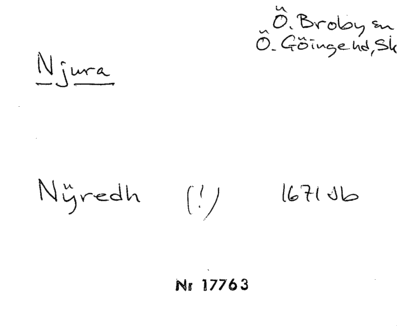 Ö. Broby sn
Ö. Göingehd, Sk
Njura
Nÿredh (!) 1671 Jb
Nr 17763